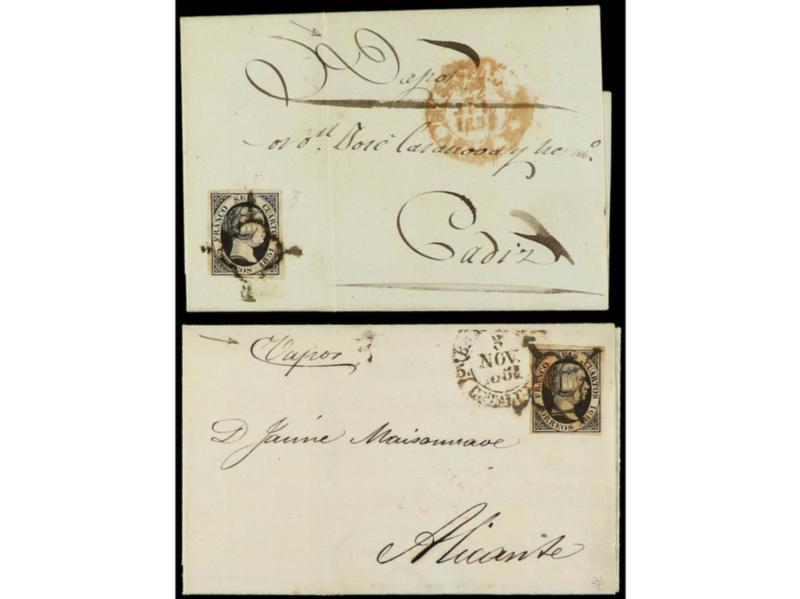 Vapor
José Casanova y herm.º
FRANCO SEIS CUARTOS
CORREOS 1851
Cadiz
Vapor
5
NOV.
FRANCO SEIS CUARTOS
CORREOS 1851
D Jaime Maisonnave
Alicante